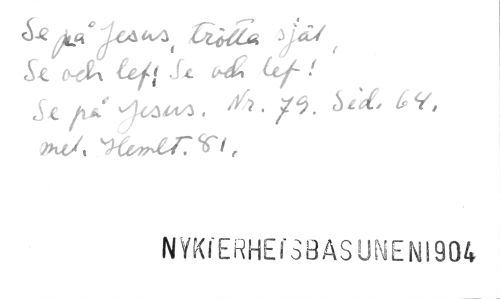 Se på Jesus, trötta själ,
Se och lef! Se och lef!
Se på Jesus. Nr. 79. Sid. 64.
mel. Hemlt. 81.
NYKTERHETSBASUNEN1904